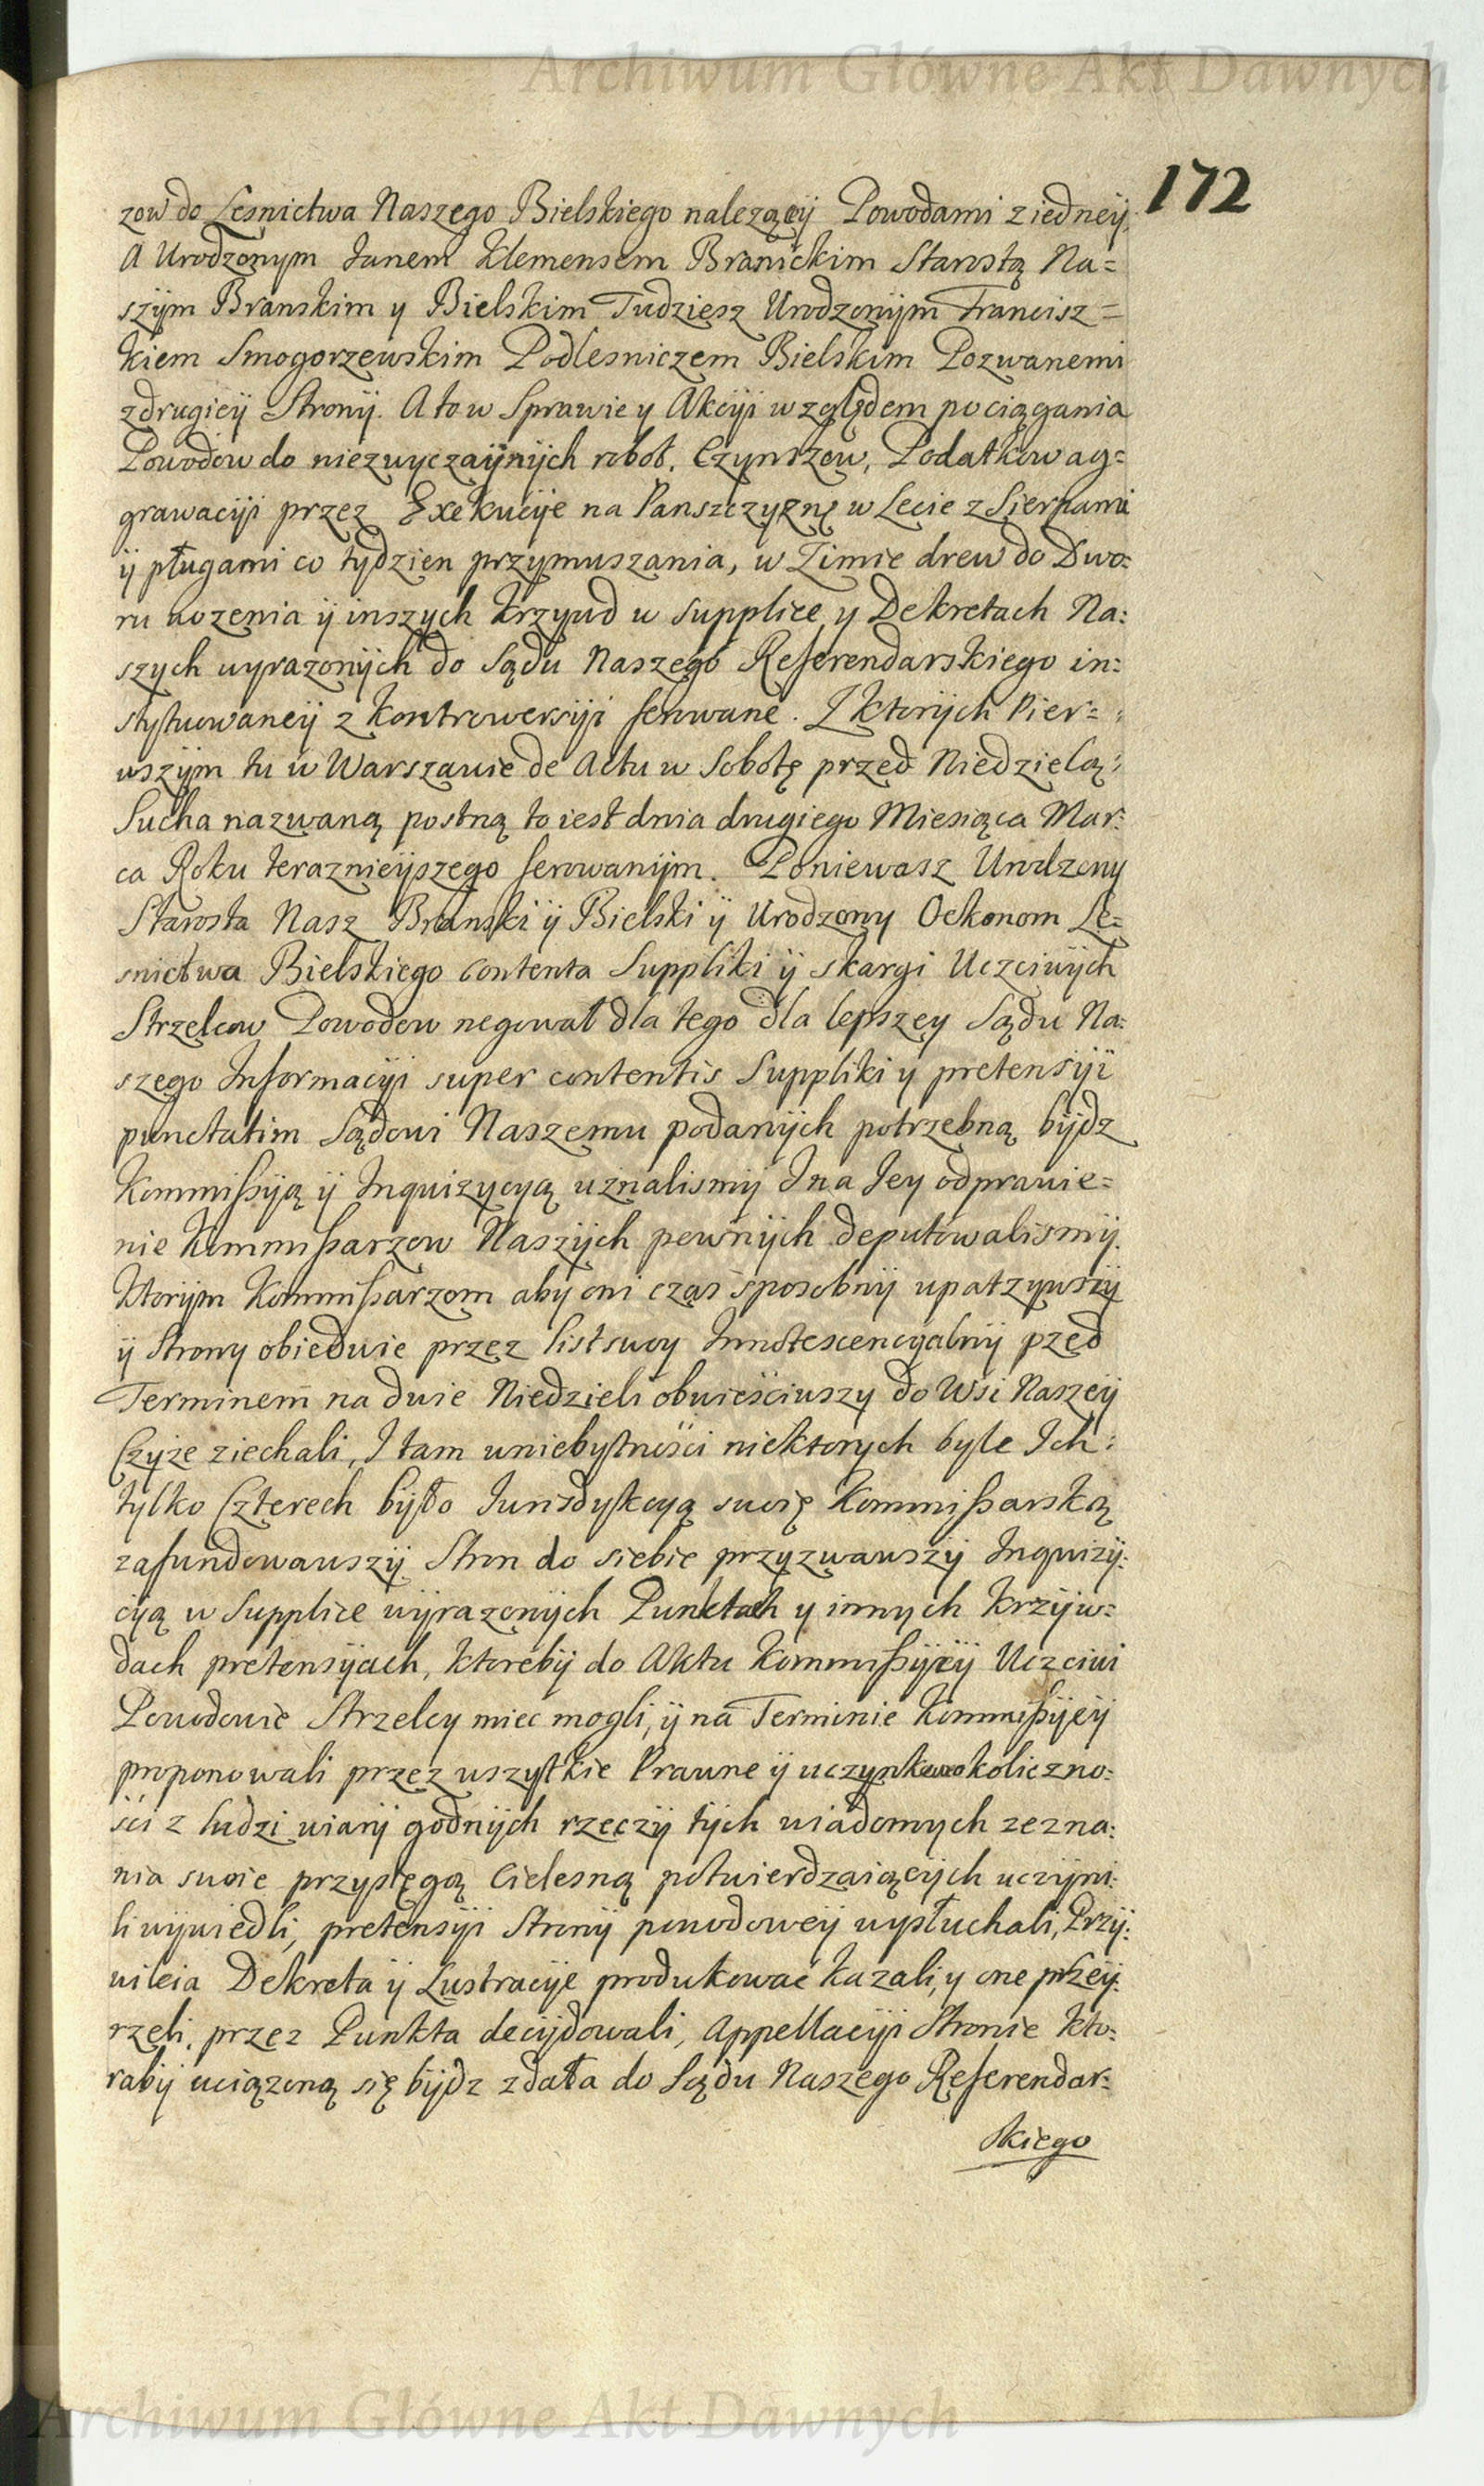 Archiwum Główne Akt Dawnych
172
zow do Lesnictwa Naszego Bielskiego nalezący Powodami z iedneÿ
A Urodzonym Janem Klemensem Branickim Starostą Na=
szÿm Branskim y Bielskim Tudziesz Urodzonÿm Francisz=
kiem Smogorzewskim Podlesniczem Bielskim Pozwanemi
z drugieÿ Stronÿ. A to w Sprawie y Akcÿi względem pociągania
Powodow do niezwyczaÿnÿch robot, Czynszow, Podatkow ag=
grawacÿi przez Exekucÿe na Panszczyznę w Lecie z Sierpami
ÿ pługami co tydzien przymuszania, w Zimie drew do Dwo:
ru wozenia ÿ inszych krzywd w supplice y Dekretach Na:
szych wyrazonÿch do Sądu Naszego Referendarskiego in:
stÿtuowaneÿ z Kontrowersÿi ferowane. Z ktorÿch Pier=
wszÿm tu w Warszawie de Actu w Sobotę przed Niedzielą
Sucha nazwaną postną to iest dnia drugiego Miesiąca Mar:
ca Roku teraznieÿszego ferowanÿm. Poniewasz Urodzony
Starosta Nasz Branski ÿ Bielski ÿ Urodzony Oekonom Le=
snictwa Bielskiego contenta Suppliki ÿ skargi Uczciwÿch
Strzelcow Powodow negował dla tego dla lepszey Sądu Na:
szego Informacÿi super contentis Suppliki y pretensÿi
punctatim Sądowi Naszemu podanÿch potrzebną bÿdz
Kommißÿą ÿ Inquizycyą uznalismÿ I na Jey odprawie=
nie Kommißarzow Naszÿch pewnÿch deputowalismÿ.
Ktorÿm Kommißarzom aby oni czas sposobnÿ upatzywszÿ
ÿ Strony obiedwie przez list swoy Innotescencyalnÿ przed
Terminem na dwie Niedzieli obwieściwszy do Wsi Naszeÿ
Czÿze ziechali, I tam w niebytności niektorych byle Ich
tylko Czterech bÿło Jurisdykcyą swoię Kommißarską
zafundowawszÿ Stron do siebie przyzwawszÿ Inquizÿ:
cÿą w Supplice wÿrazonÿch Punktach y innych krzÿw:
dach pretensÿach, ktorebÿ do Aktu Kommißÿeÿ Uczciwi
Powodowie Strzelcy miec mogli, ÿ na Terminie Kommißÿeÿ
proponowali przez wszystkie Prawne ÿ uczynkowe okoliczno:
ści z ludzi wiarÿ godnÿch rzeczÿ tÿch wiadomych zezna:
nia swoie przysięgą Cielesną potwierdzaiącÿch uczÿni:
li wÿwiedli, pretensÿi Stronÿ powodoweÿ wysłuchali, Przÿ:
wileia Dekreta ÿ Lustracÿe produkować kazali, y one przeÿ:
rzeli, przez Punkta decÿdowali, Appellacÿi Stronie kto:
rabÿ uciązoną się bÿdz zdała do Sądu Naszego Referendar:
skiego
Archiwum Główne Akt Dawnych